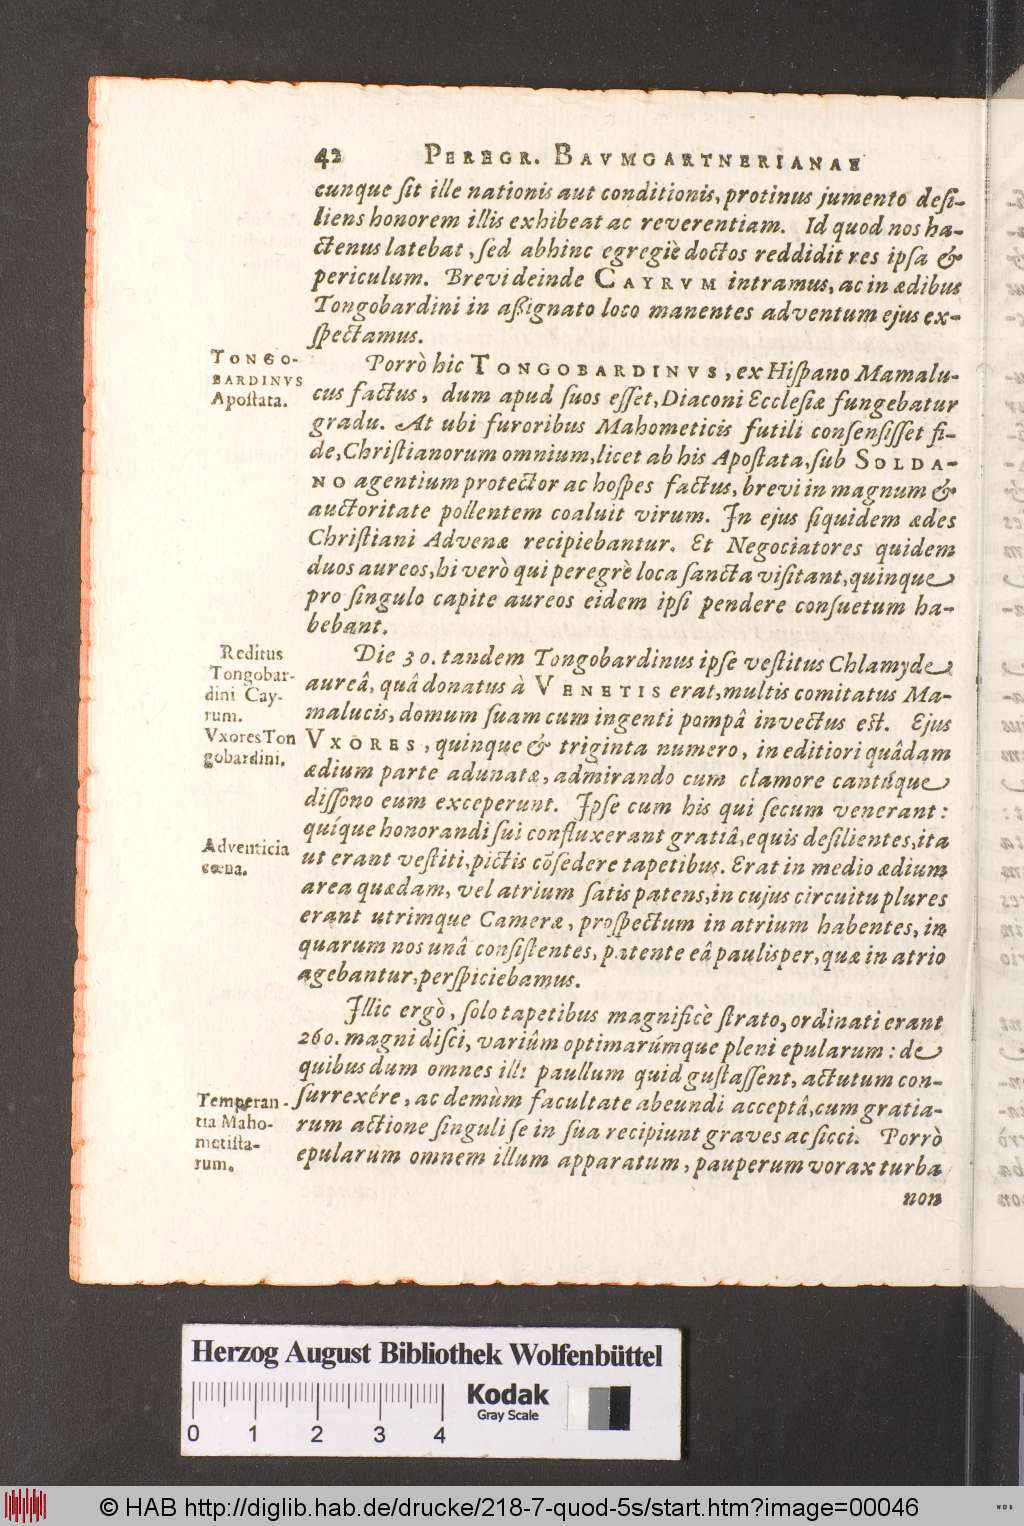 42 PEREGR. BAVMGARTNERIANAE
cunque sit ille nationis aut conditionis, protinus jumento desi-
liens honorem illis exhibeat ac reverentiam. Id quod nos ha-
ctenus latebat, sed abhinc egregiè doctos reddidit res ipsa &
periculum. Brevi deinde CAYRVM intramus, ac in ædibus
Tongobardini in aßignato loco manentes adventum ejus ex-
spectamus.
TONGO-
BARDINVS
Apostata.
Porrò hic TONGOBARDINVS, ex Hispano Mamalu-
cus factus, dum apud suos esset, Diaconi Ecclesiæ fungebatur
gradu. At ubi furoribus Mahometicis futili consensisset fi-
de, Christianorum omnium, licet ab his Apostata, sub SOLDA-
NO agentium protector ac hospes factus, brevi in magnum &
auctoritate pollentem coaluit virum. In ejus siquidem ædes
Christiani Advenæ recipiebantur. Et Negociatores quidem
duos aureos, hi verò qui peregrè loca sancta visitant, quinque
pro singulo capite aureos eidem ipsi pendere consuetum ha-
bebant.
Reditus
Tongobar-
dini Cay-
rum.
Vxores Ton
gobardini.
Die 30. tandem Tongobardinus ipse vestitus Chlamyde
aureâ, quâ donatus à VENETIS erat, multis comitatus Ma-
malucis, domum suam cum ingenti pompâ invectus est. Ejus
VXORES, quinque & triginta numero, in editiori quâdam
ædium parte adunatæ, admirando cum clamore cantúque
dissono eum exceperunt. Ipse cum his qui secum venerant:
quíque honorandi sui confluxerant gratiâ, equis desilientes, ita
Adventicia
cœna.
ut erant vestiti, pictis cõsedere tapetibus. Erat in medio ædium
area quædam, vel atrium satis patens, in cujus circuitu plures
erant utrimque Cameræ, prospectum in atrium habentes, in
quarum nos unâ consistentes, patente eâ paulisper, quæ in atrio
agebantur, perspiciebamus.
Illic ergò, solo tapetibus magnificè strato, ordinati erant
260. magni disci, variûm optimarúmque pleni epularum: de
quibus dum omnes illi paullum quid gustassent, actutum con-
surrexére, ac demùm facultate abeundi acceptâ, cum gratia-
Temperan-
tia Maho-
metista-
rum.
rum actione singuli se in sua recipiunt graves ac sicci. Porrò
epularum omnem illum apparatum, pauperum vorax turba
non
Herzog August Bibliothek Wolfenbüttel
Kodak
Gray Scale
0 1 2 3 4
© HAB http://diglib.hab.de/drucke/218-7-quod-5s/start.htm?image=00046